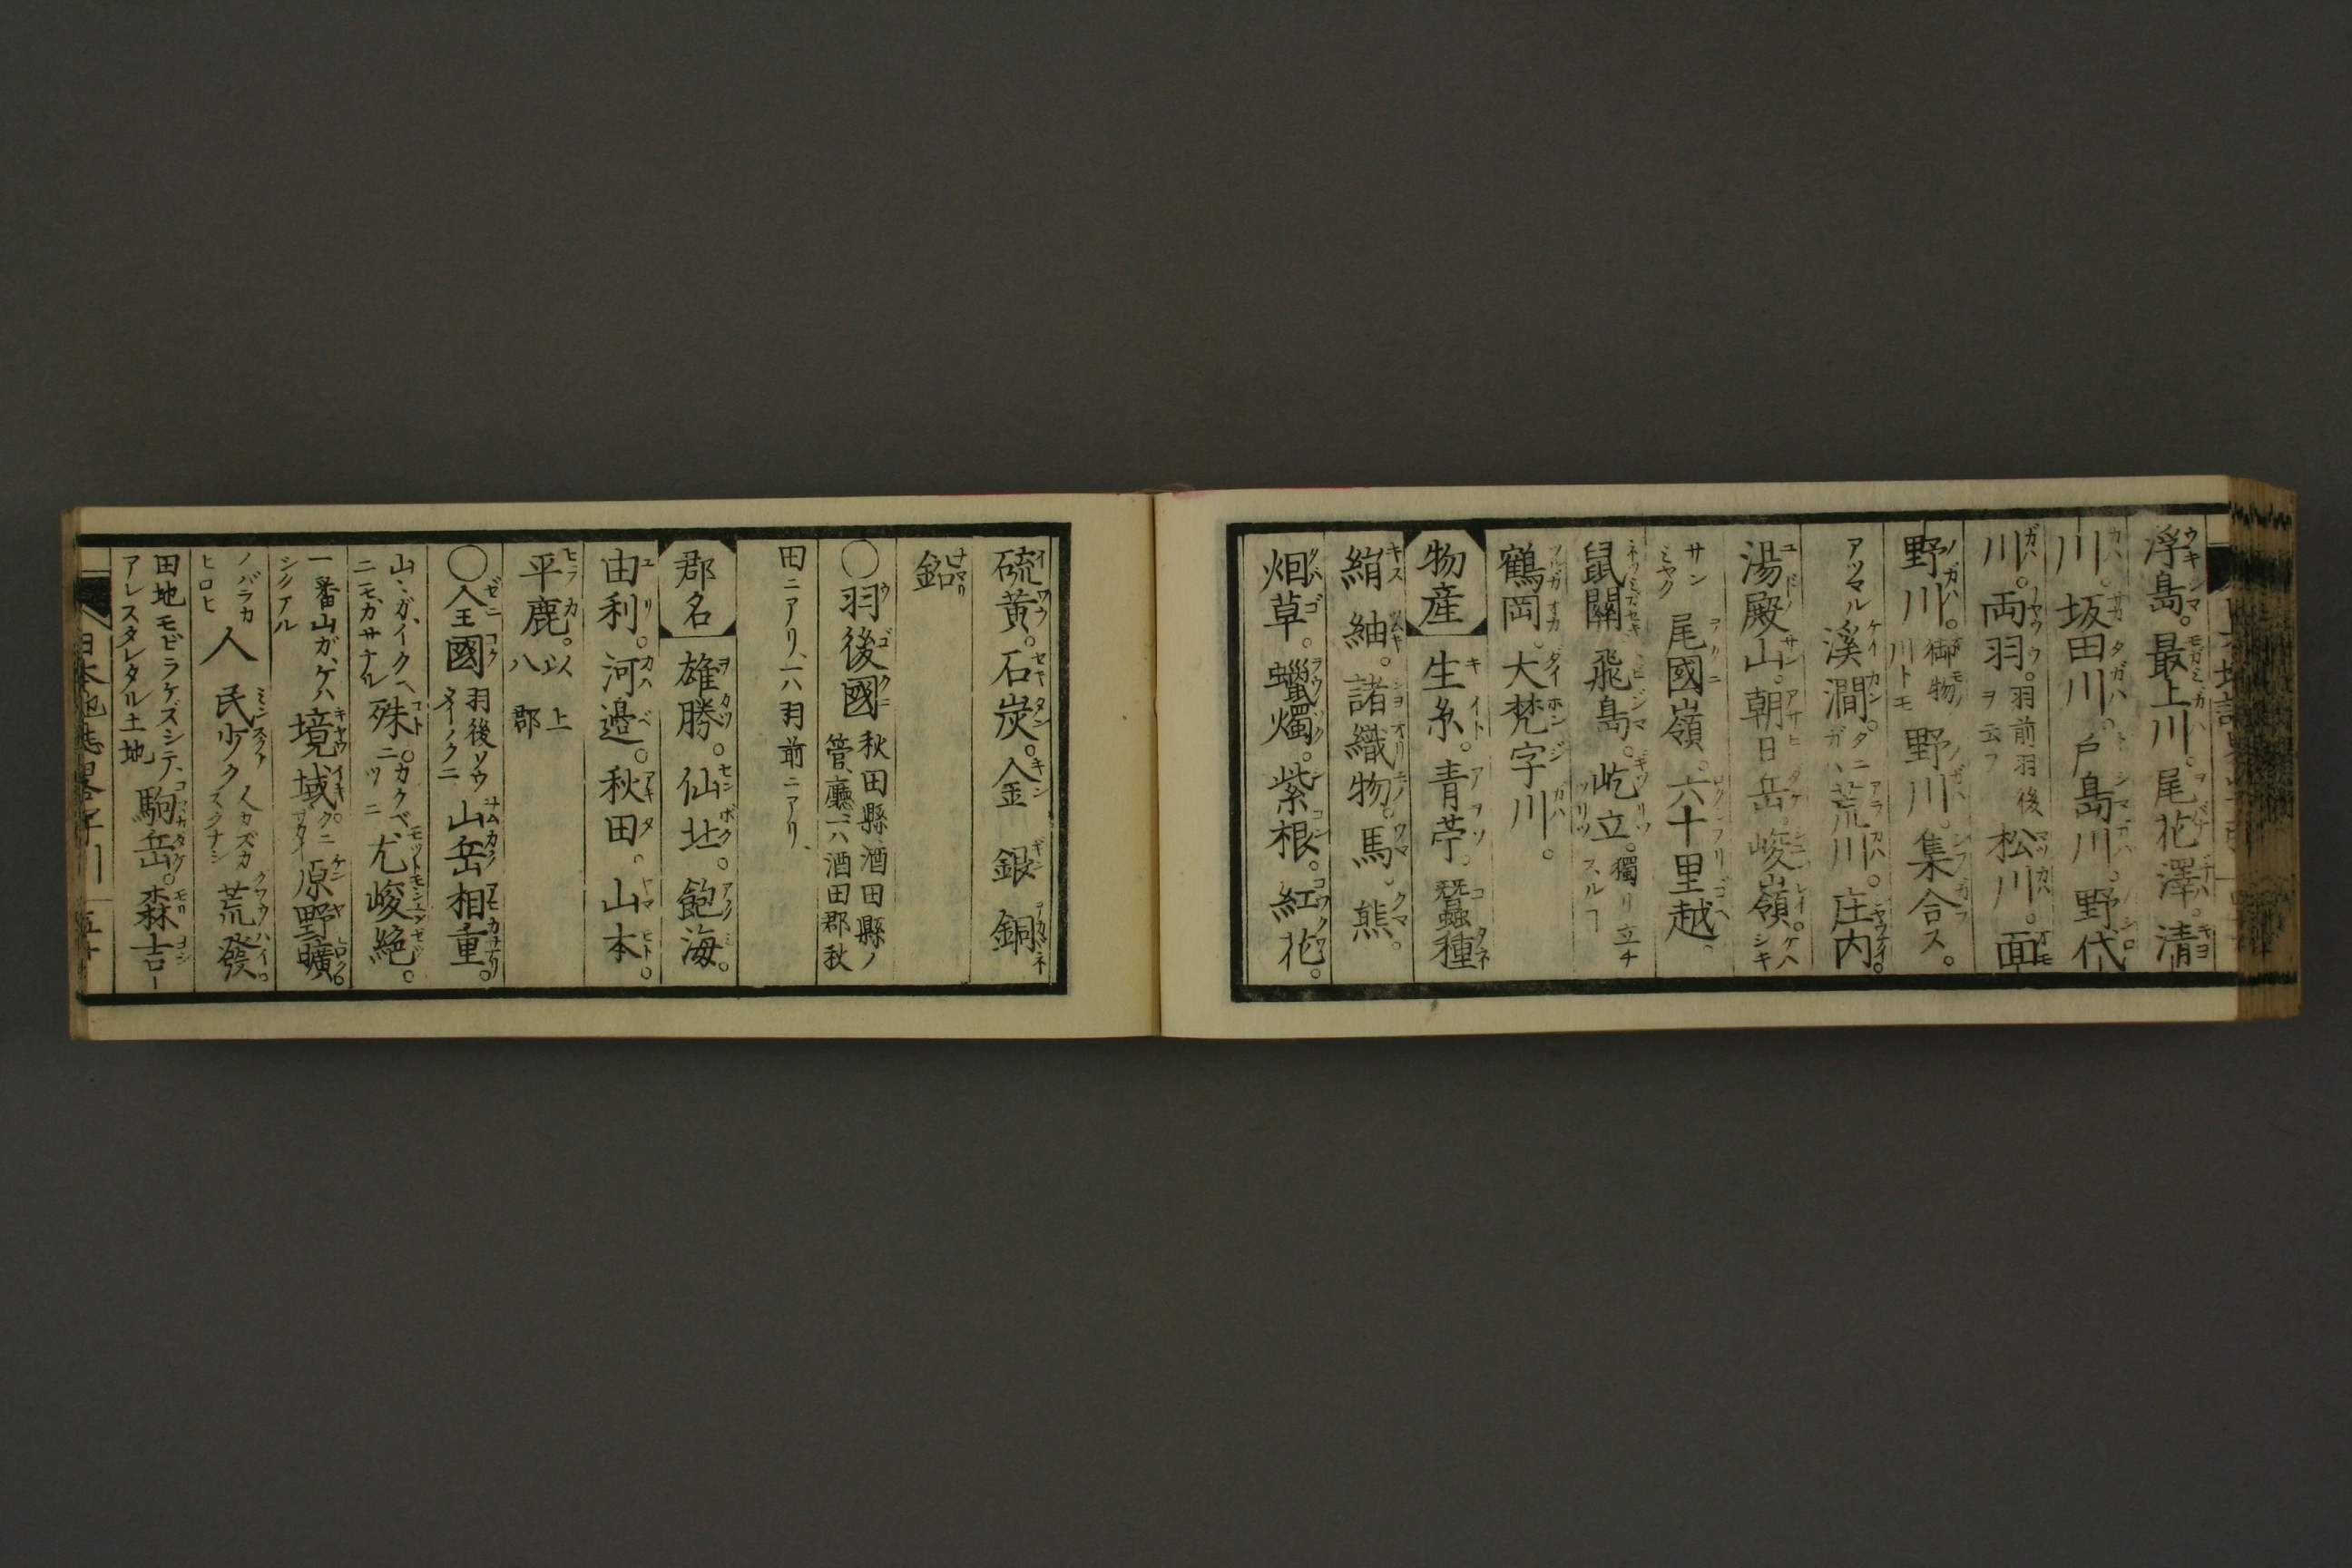 浮島。最上川。尾花澤。清
川。坂田川。戸島川。野代
川。両羽。羽前羽後ヲ云フ 松川。面
野川。御物川トモ 野川。集合ス。
アツマル 溪澗。タニガハ 荒川。庄内。
湯殿山。朝日岳。峻嶺。ケハシキ
サンミヤク 尾國嶺。六十里越。
鼠關 飛島。屹立。獨リ立チスルヿ
鶴岡。大梵字川。
物産 生糸。青苧。蠶種
絹紬。諸織物。馬。熊。
烟草。蠟燭。紫根。紅花。
硫黄。石炭。金 銀 銅
鉛
○羽後國 秋田縣酒田縣ノ管廳、一ハ酒田郡秋
田ニアリ、一ハ羽前ニアリ、
郡名 雄勝。仙北。飽海。
由利。河邉。秋田。山本。
平鹿。以上八郡
○全國 羽後ソウタイノクニ 山岳相重。
山〻ガ、イクヘニモ、カサナル 殊。カクベツニ 尤峻絶。
一番山ガ、ケハシクアル 境域。クニザカイ 原野曠。
ノバラカヒロヒ 人民少ク 人カズカスクナシ 荒發。
田地モ、ビラケズシテ、アレスタレタル土地 駒岳。森吉
日本地誌畧字引 五十